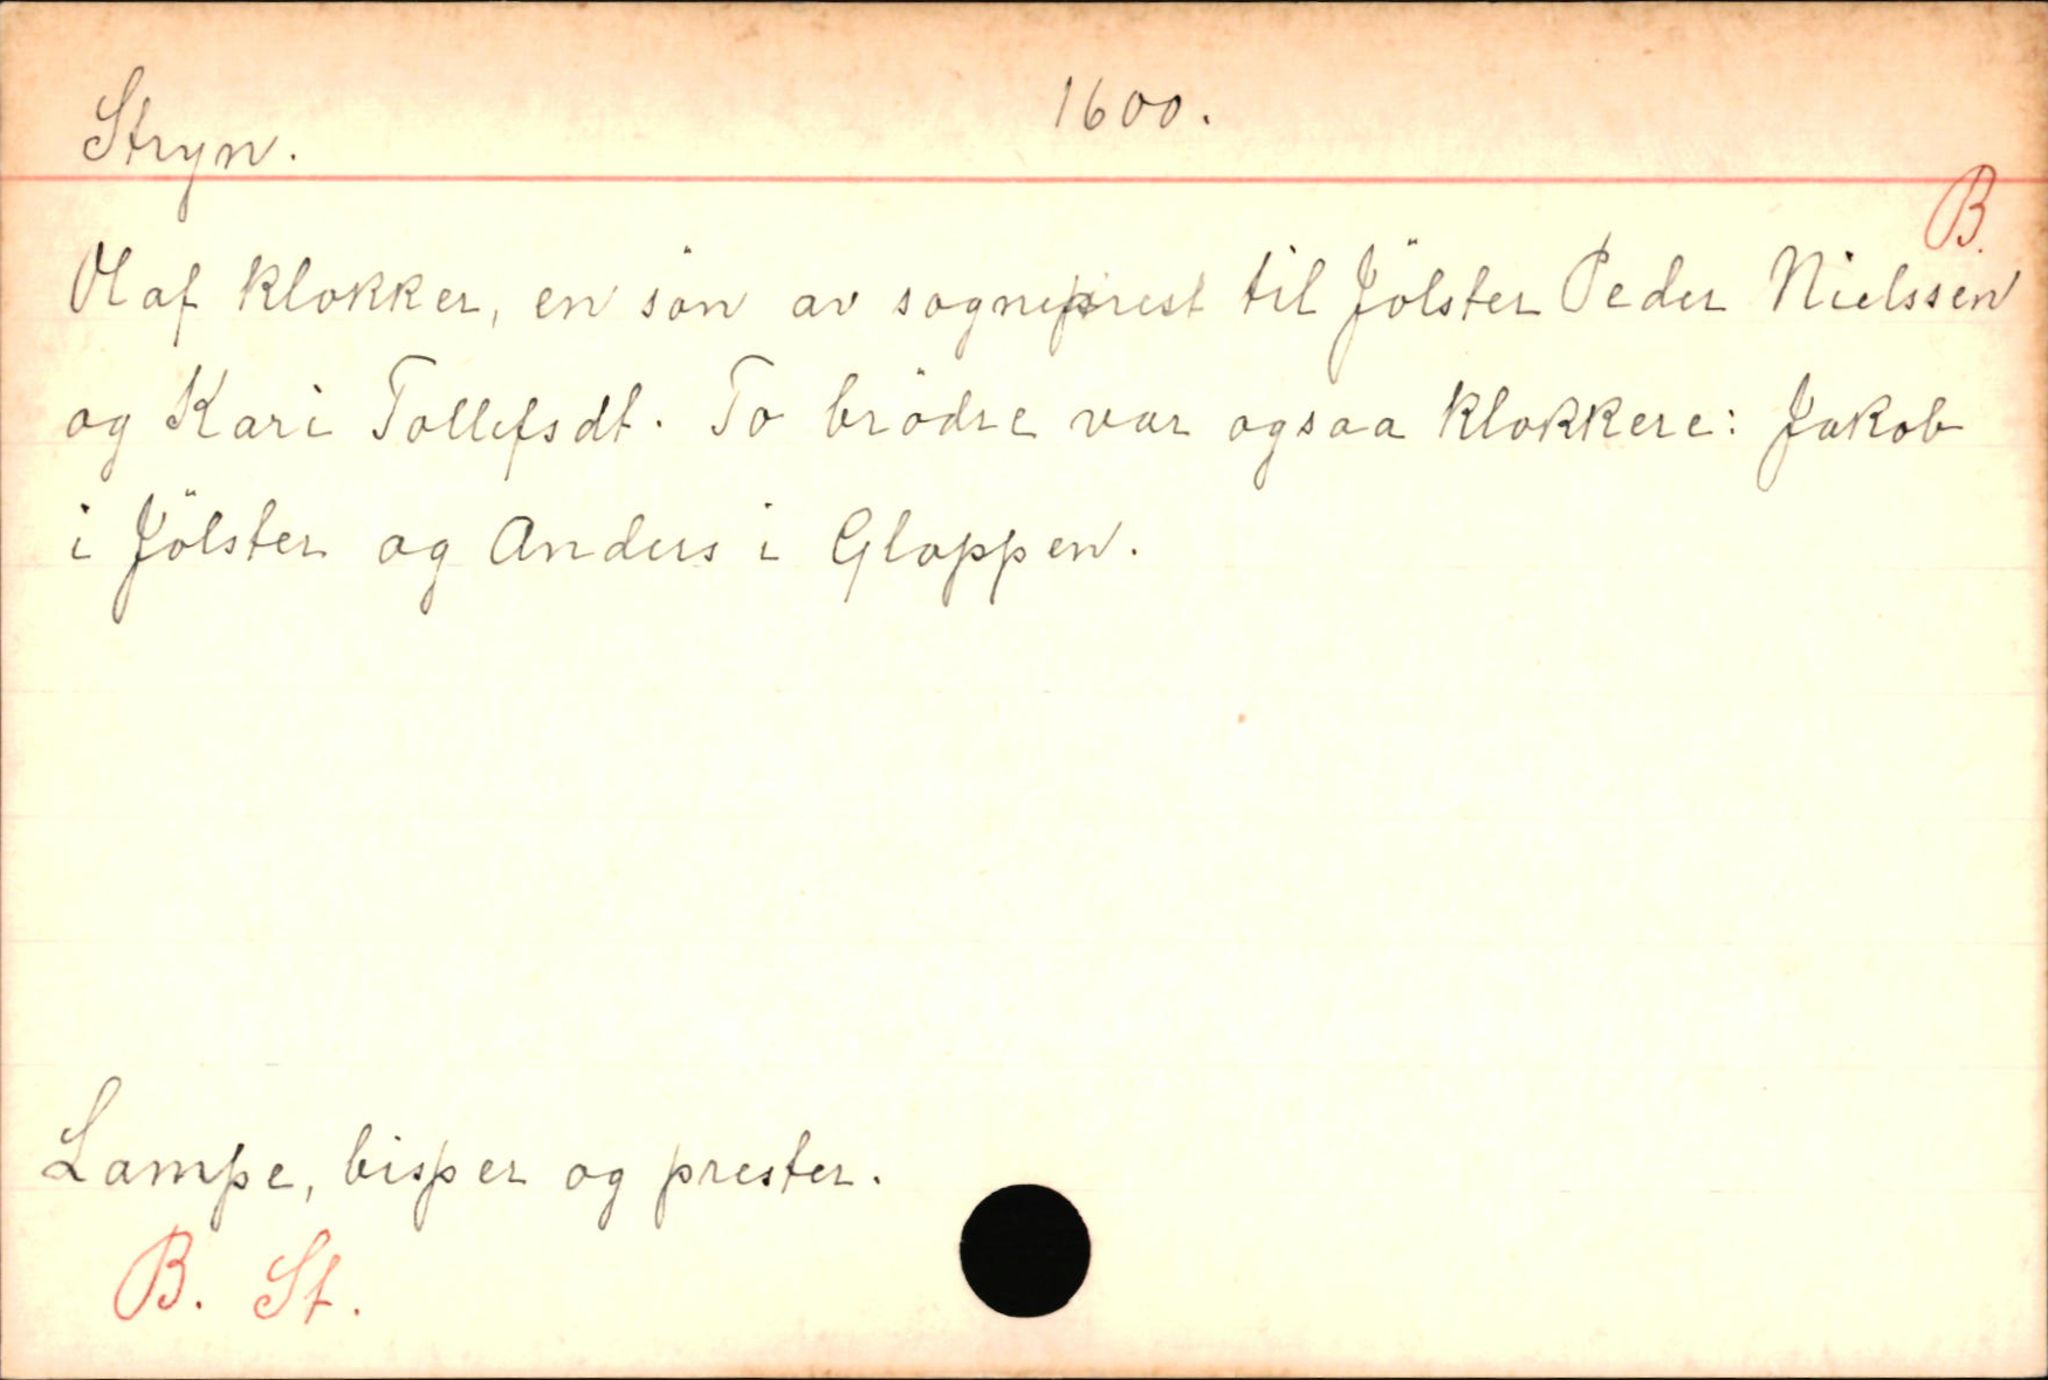 Stryn.
1600.
B.
Olaf klokker, en sön av sogneprest til Jölster Peder Nielssen
og Kari Tollefsdt. To brödre var ogsaa klokkere: Jakob
i Jölster og Anders i Gloppen.
Lampe, bisper og prester.
B. St.